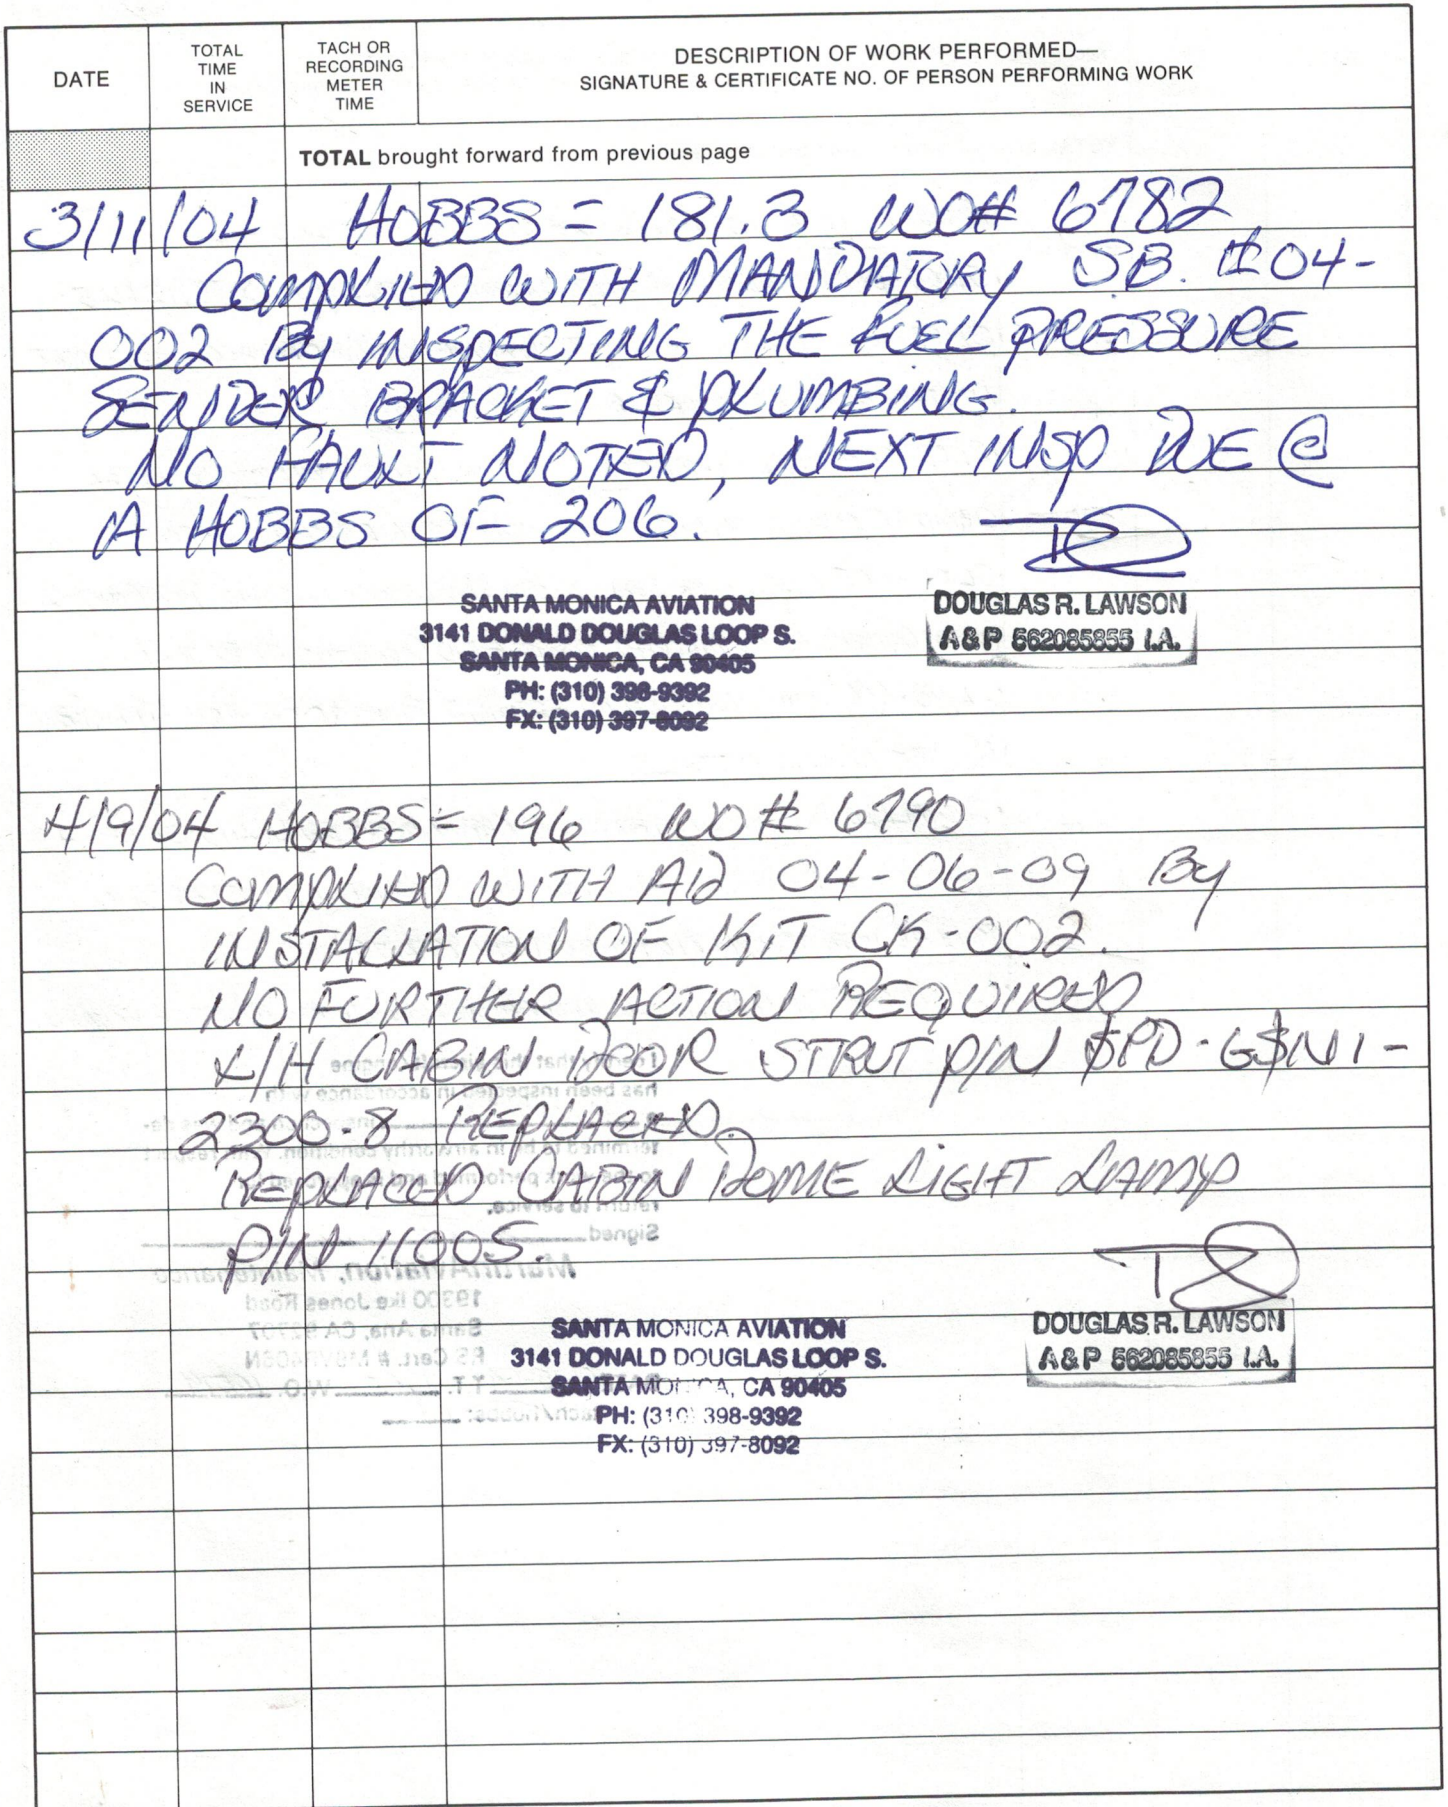 DATE
TOTAL
TIME
IN
SERVICE
TACH OR
RECORDING
METER
TIME
DESCRIPTION OF WORK PERFORMED—
SIGNATURE & CERTIFICATE NO. OF PERSON PERFORMING WORK
TOTAL brought forward from previous page
3/11/04 HOBBS = 181.3 WO# 6782
COMPLIED WITH MANDATORY SB. #04-
002 By INSPECTING THE FUEL PRESSURE
SENDER, BRACKET & PLUMBING.
NO FAULT NOTED, NEXT INSP DUE @
A HOBBS OF 206.
SANTA MONICA AVIATION
3141 DONALD DOUGLAS LOOP S.
SANTA MONICA, CA 90405
PH: (310) 398-9392
FX: (310) 397-8092
DOUGLAS R. LAWSON
A&P 562085855 I.A.
4/9/04 HOBBS = 196 WO# 6790
COMPLIED WITH AD 04-06-09 By
INSTALLATION OF KIT CK-002.
NO FURTHER ACTION REQUIRED
L/H CABIN DOOR STRUT P/N
2300-8 REPLACED.
REPLACED CABIN DOME LIGHT LAMP
P/N 11005.
SANTA MONICA AVIATION
3141 DONALD DOUGLAS LOOP S.
SANTA MONICA, CA 90405
PH: (310) 398-9392
FX: (310) 397-8092
DOUGLAS R. LAWSON
A&P 562085855 I.A.